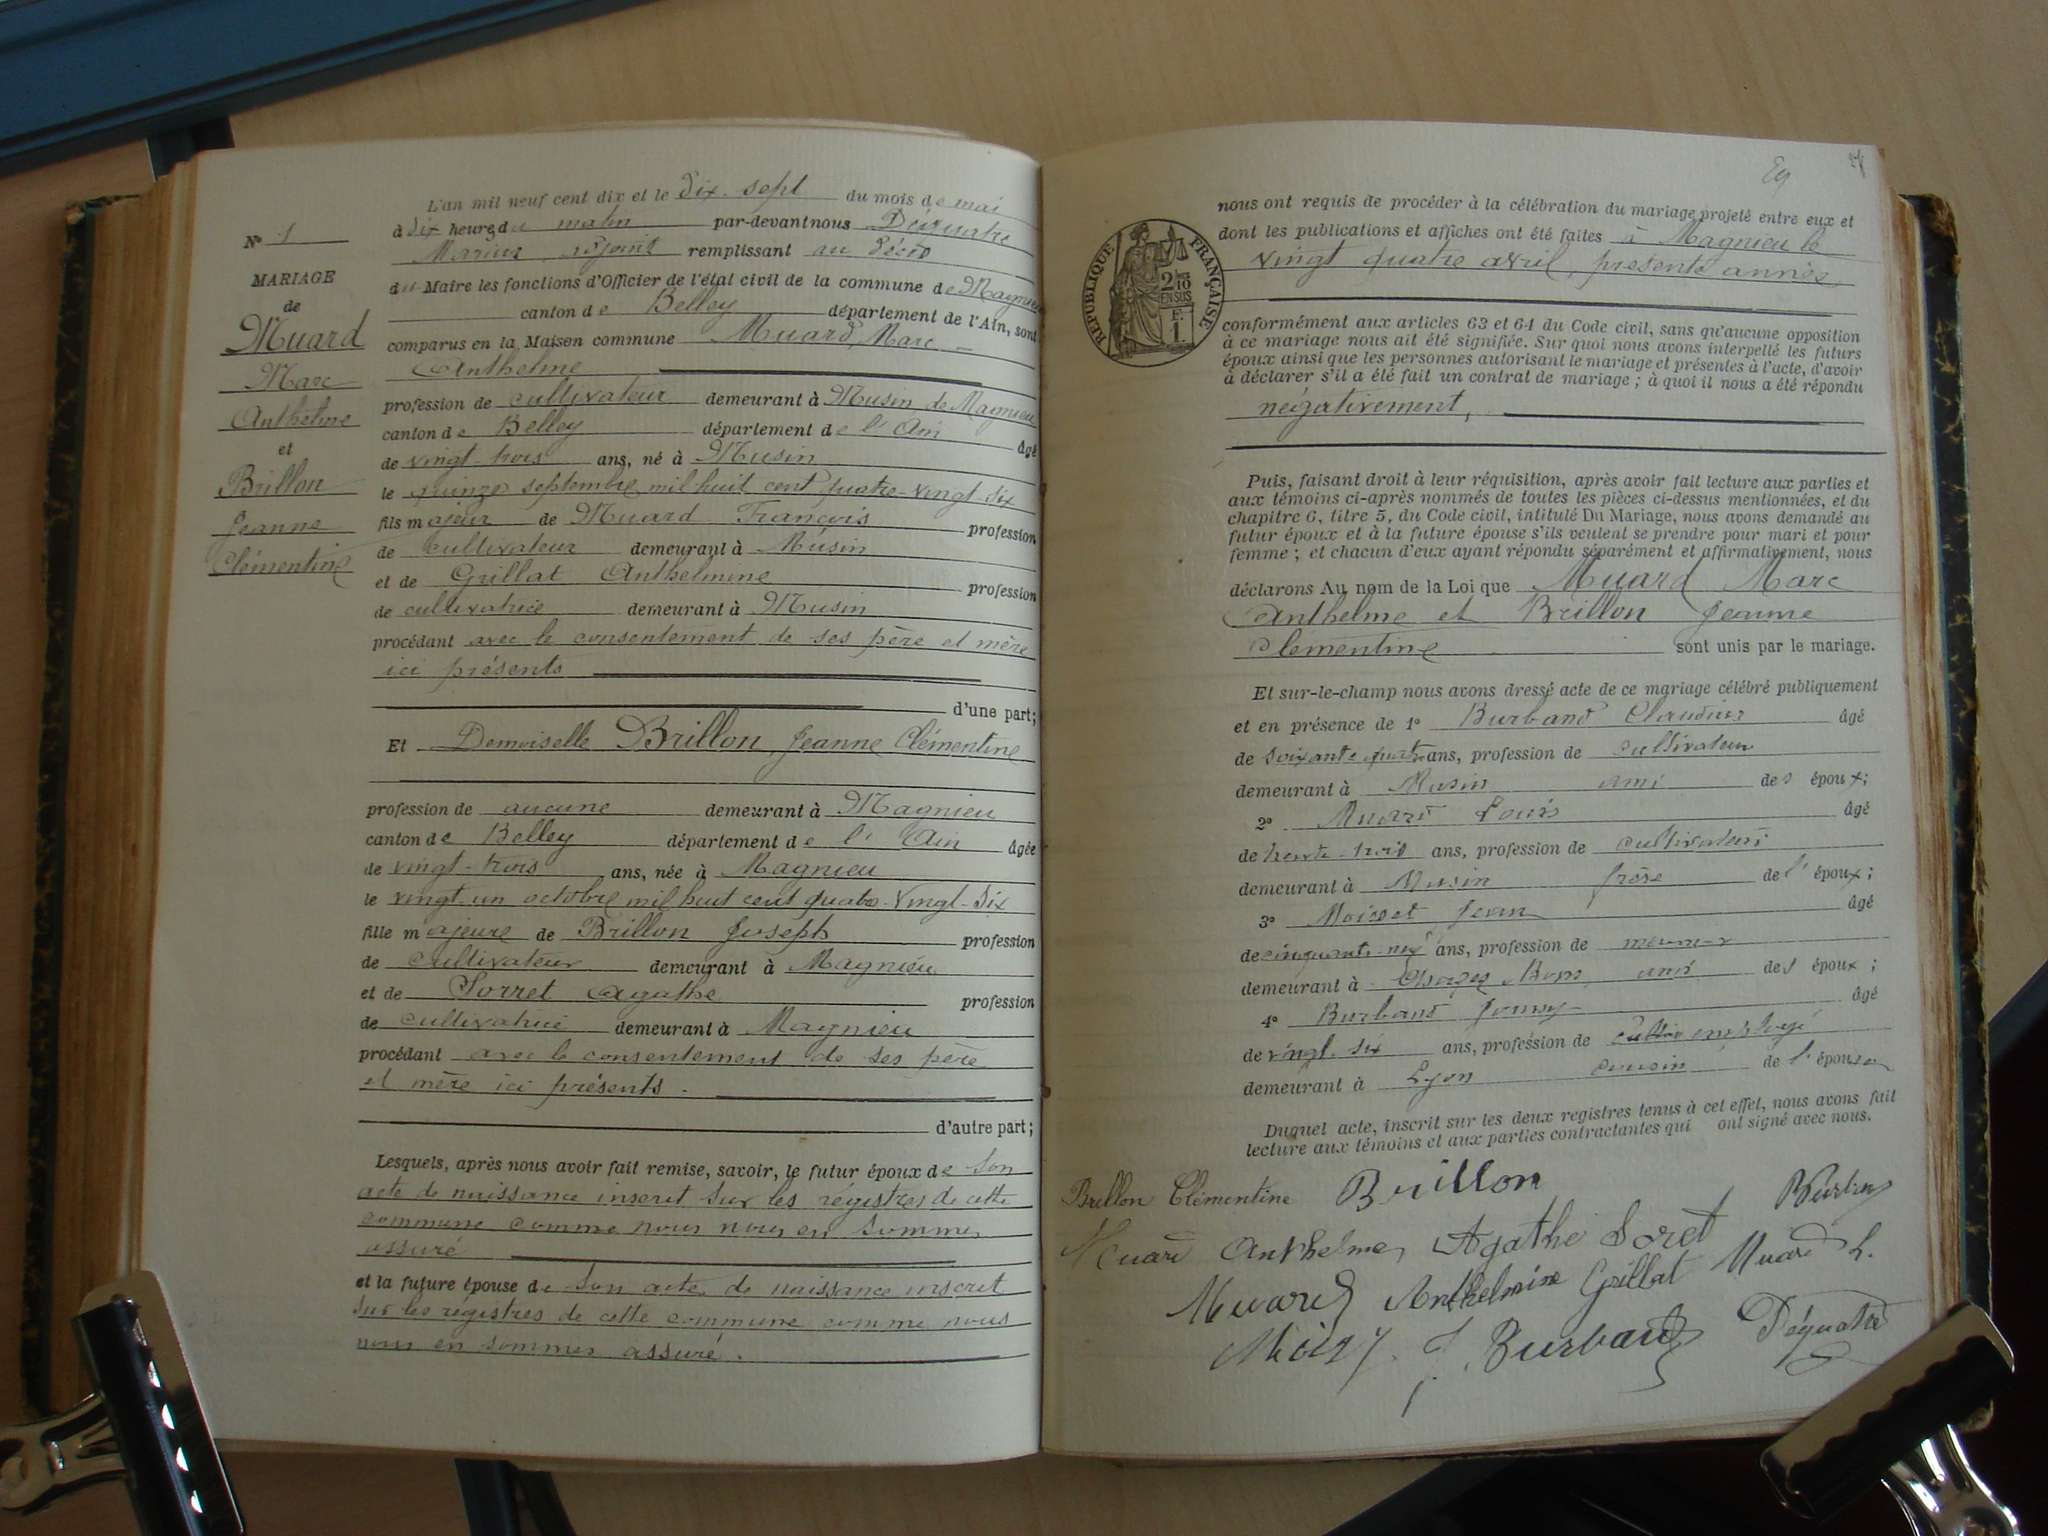 L'an mil neuf cent dix et le dix-sept du mois de mai
à dix heures du matin par-devant nous Déquatre
Marius adjoint remplissant au décès
du Maire les fonctions d'Officier de l'état civil de la commune de Magnieu
canton de Belley département de l'Ain, sont
comparus en la Maison commune Muard Marc
Anthelme
profession de cultivateur demeurant à Musin de Magnieu
canton de Belley département de l'Ain âgé
de vingt-trois ans, né à Musin
le quinze septembre mil huit cent quatre-vingt-six
fils majeur de Muard François profession
de cultivateur demeurant à Musin
et de Grillat Anthelmine profession
de cultivatrice demeurant à Musin
procédant avec le consentement de ses père et mère
ici présents
d'une part;
Et Demoiselle Brillon Jeanne Clémentine
profession de aucune demeurant à Magnieu
canton de Belley département de l'Ain âgée
de vingt-trois ans, née à Magnieu
le vingt-un octobre mil huit cent quatre-vingt-six
fille majeure de Brillon Joseph profession
de cultivateur demeurant à Magnieu
et de Sorret Agathe profession
de cultivatrice demeurant à Magnieu
procédant avec le consentement de ses père
et mère ici présents.
d'autre part;
Lesquels, après nous avoir fait remise, savoir, le futur époux de son
acte de naissance inscrit sur les régistres de cette
commune comme nous nous en sommes
assuré
et la future épouse de son acte de naissance inscrit
sur les régistres de cette commune comme nous
nous en sommes assuré.
N° 1
MARIAGE
de
Muard
Marc
Anthelme
et
Brillon
Jeanne
Clémentine
RÉPUBLIQUE FRANÇAISE
2/10
EN SUS
F.
1
nous ont requis de procéder à la célébration du mariage projeté entre eux et
dont les publications et affiches ont été faites à Magnieu le
vingt quatre avril, présente année,
conformément aux articles 63 et 64 du Code civil, sans qu'aucune opposition
à ce mariage nous ait été signifiée. Sur quoi nous avons interpellé les futurs
époux ainsi que les personnes autorisant le mariage et présentes à l'acte, d'avoir
à déclarer s'il a été fait un contrat de mariage ; à quoi il nous a été répondu
négativement,
Puis, faisant droit à leur réquisition, après avoir fait lecture aux parties et
aux témoins ci-après nommés de toutes les pièces ci-dessus mentionnées, et du
chapitre 6, titre 5, du Code civil, intitulé Du Mariage, nous avons demandé au
futur époux et à la future épouse s'ils veulent se prendre pour mari et pour
femme ; et chacun d'eux ayant répondu séparément et affirmativement, nous
déclarons Au nom de la Loi que Muard Marc
Anthelme et Brillon Jeanne
Clementine sont unis par le mariage.
Et sur-le-champ nous avons dressé acte de ce mariage célébré publiquement
et en présence de 1° Burband Claudius âgé
de soixante quatre ans, profession de cultivateur
demeurant à Musin ami des époux;
2° Muard Louis âgé
de trente-trois ans, profession de cultivateur
demeurant à Musin frère de l'époux;
3° Jean âgé
de cinquante-six ans, profession de meunier
demeurant à ami des époux;
4° Burband âgé
de vingt-six ans, profession de employé
demeurant à Lyon cousin de l'épouse
Duquel acte, inscrit sur les deux registres tenus à cet effet, nous avons fait
lecture aux témoins et aux parties contractantes qui ont signé avec nous.
Brillon Clémentine Brillon Burband
Muard Anthelme, Agathe Soret Muard L.
Muard Anthelmine Grillat
J. Burband Déquatre